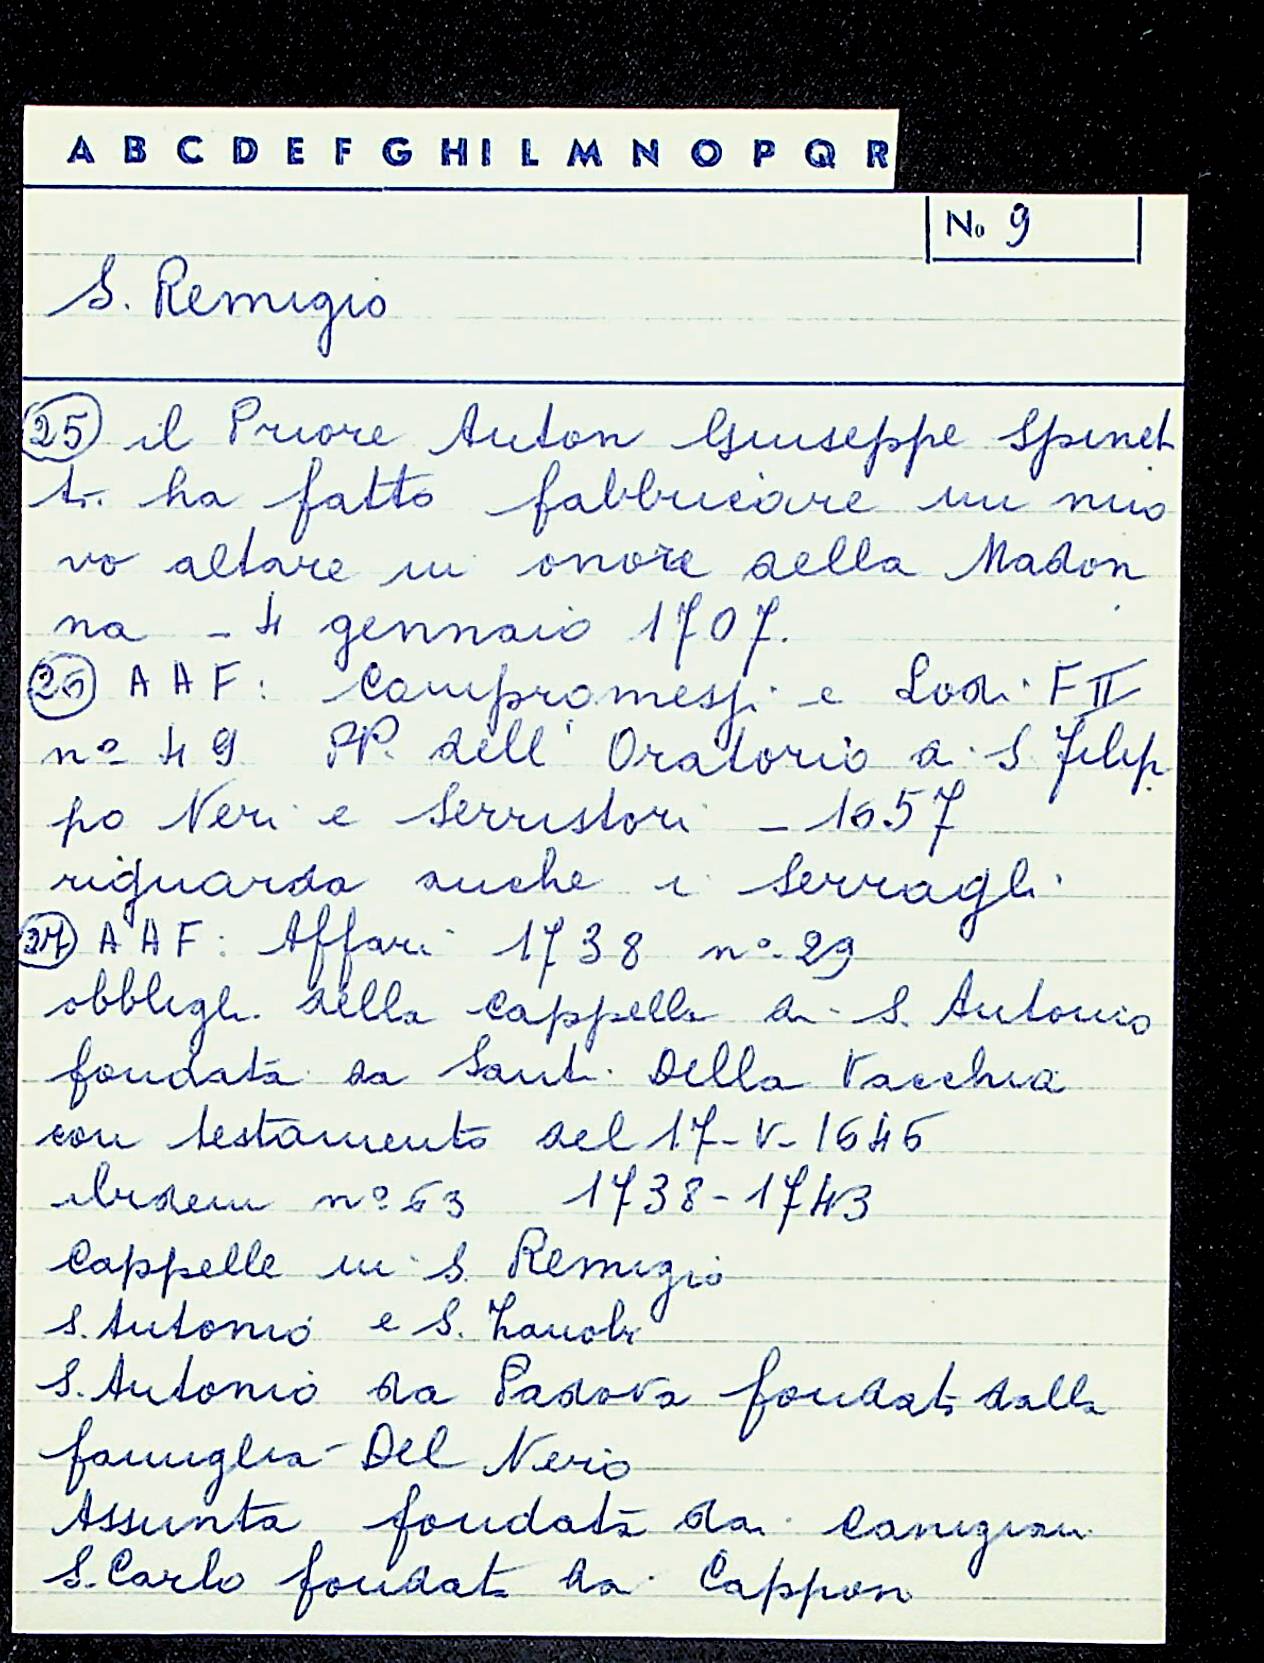 A B C D E F G H I L M N O P Q R
No 9
S. Remigio
25 il Priore Anton Giuseppe Spinet
ti ha fatto fabbricare un nuo
vo altare in onore della Madon
na - 4 gennaio 1707.
26 AAF: Compromessi e Lodi F II
nº 49 PP. dell' Oratorio di S. Filip
po Neri e Serristori - 1657
riguarda anche i Serragli
27 AAF: Affari 1738 nº 29
obblighi della cappella di S. Antonio
fondata da Santi Della Vacchia
con testamento del 17-V-1646
ibidem nº 63 1738-1743
Cappelle in S. Remigio
S. Antonio e S. Zanobi
S. Antonio da Padova fondata dalla
famiglia Del Nero
Assunta fondata dai Canigiani
S. Carlo fondata dai Capponi